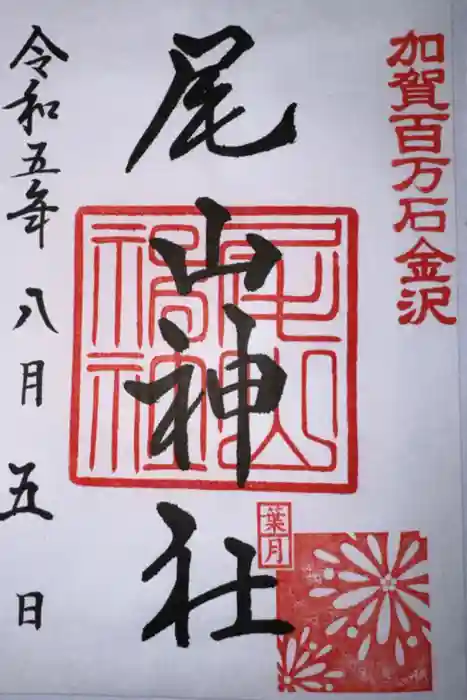 加賀百万石金沢
尾山神社
尾山
神社
葉月
令和五年八月五日